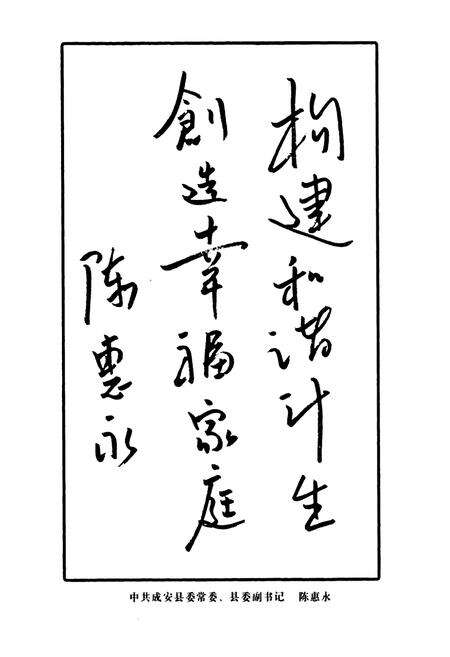 构建和谐计生
創造幸福家庭
陈惠永
中共成安县委常委、县委副书记 陈惠永